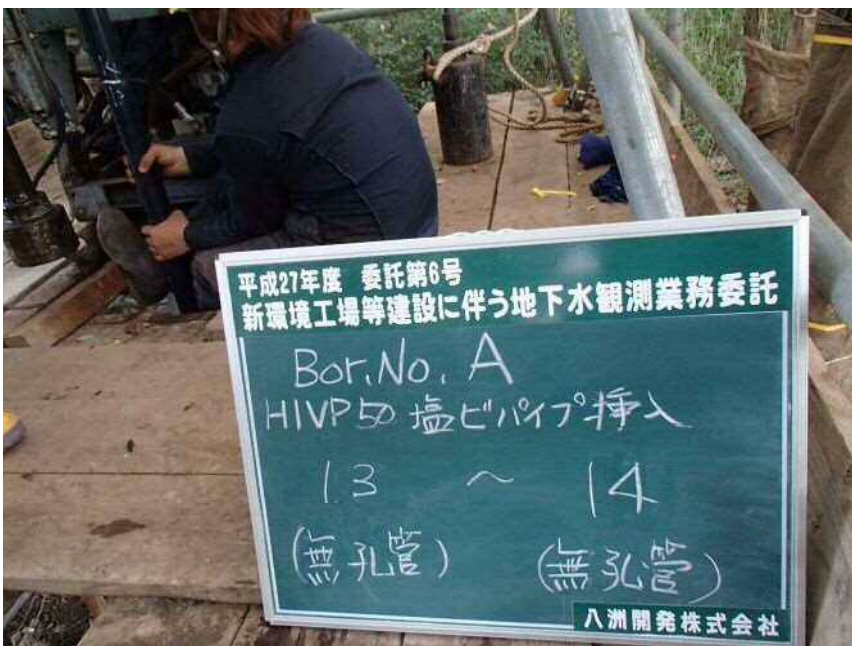 平成27年度 委託第6号
新環境工場等建設に伴う地下水観測業務委託
Bor.No. A
HIVP50 塩ビパイプ挿入
13 ～ 14
(無孔管) (無孔管)
八洲開発株式会社